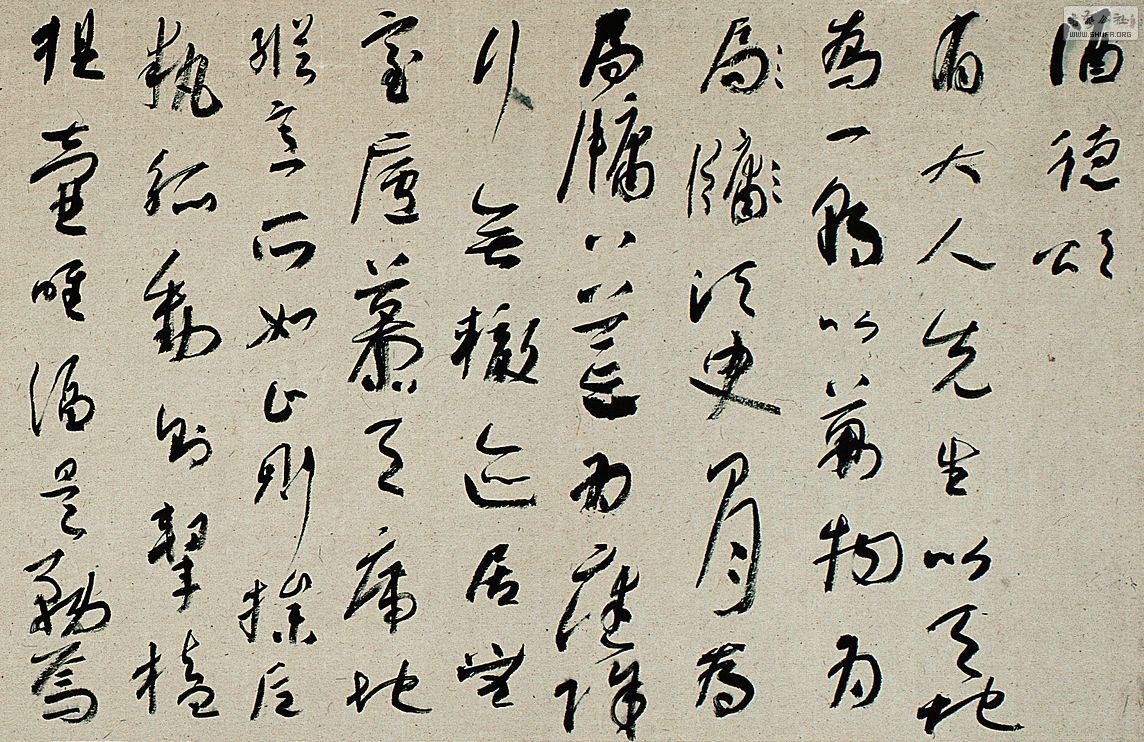 酒德頌
有大人先生以天地
為一朝以萬物為
扃牖須臾日月為
扃牖八荒為庭除
行無轍迹居無
室廬幕天席地
縱意所如止則操卮
執觚動則挈榼
提壺唯酒是務焉
WWW.SHUFA.ORG